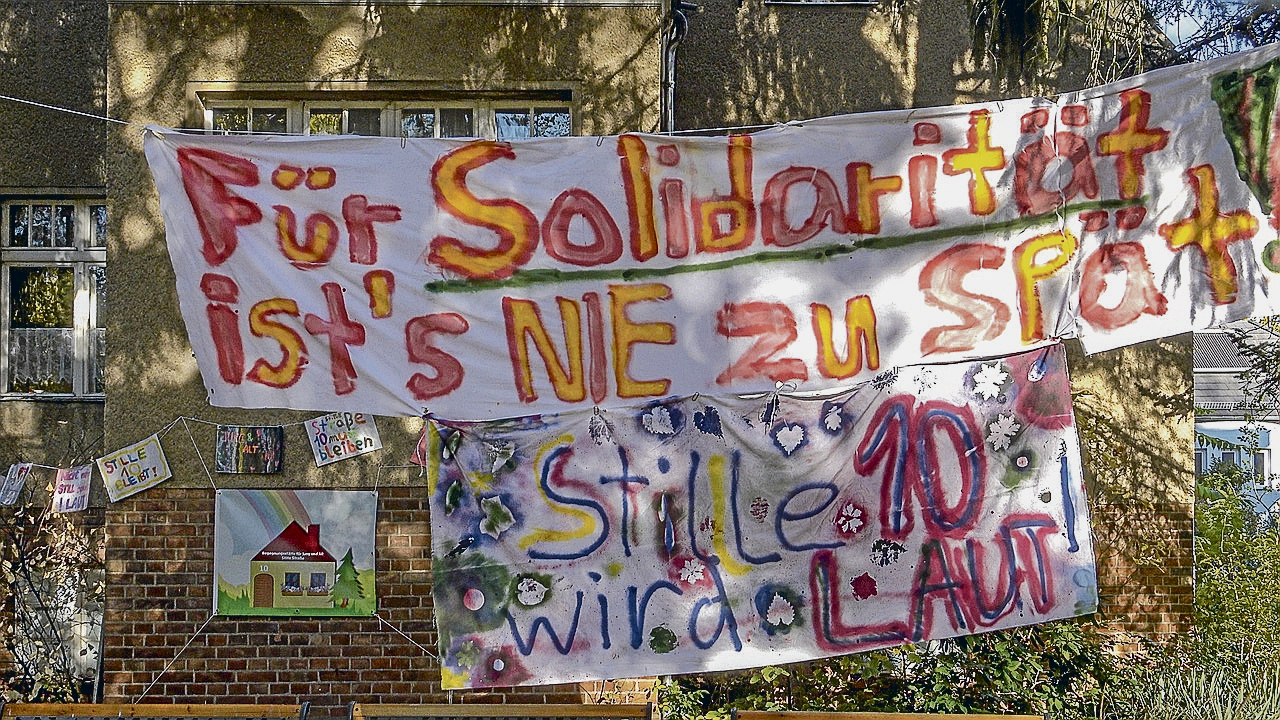 Für Solidarität
ist's NIE zu spät!
Stille 10
wird LAUT!
STILLE
10
BLEIBT!
Straße
10 muß
bleiben
Begegnungsstätte für Jung und Alt
Stille Straße
10